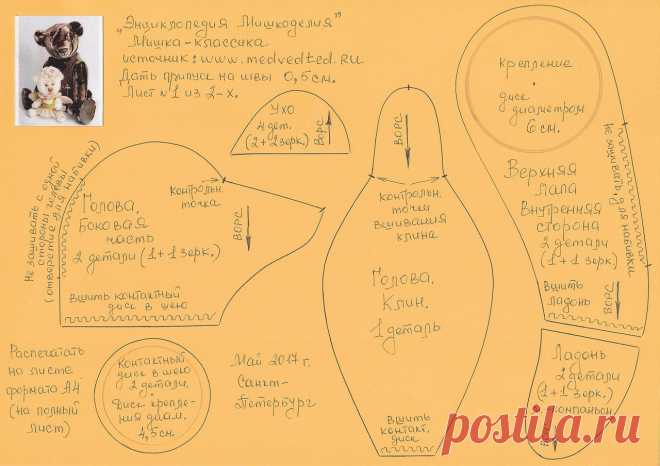 „Энциклопедия Мишкоделия"
Мишка-классика
источник: www.medvedted.RU
Дать припуск на швы 0,5см.
Лист №1 из 2-х.
Ухо
4 дет.
(2+2 зерк.)
ВОРС
Не зашивать с одной
стороны головы
(отверстие для набивки)
Голова.
Боковая
часть
2 детали (1+1 зерк.)
Контрольн.
точка
ВОРС
Вшить контактный
диск в шею
ВОРС
Контрольн.
точки
вшивания
клина
Голова.
Клин.
1 деталь
Вшить
контакт.
диск
крепление
диск
диаметром
6 см.
Не зашивать, для набивки
Верхняя
лапа
Внутренняя
сторона
2 детали
(1+1 зерк.)
Вшить
ладонь
ВОРС
Ладонь
2 детали
(1+1 зерк.)
Распечатать
на листе
формата А4
(на полный
лист)
Контактный
диск в шею
2 детали.
Диск крепле-
ния диам.
4,5см.
Май 2017 г.
Санкт-
Петербург
postila.ru